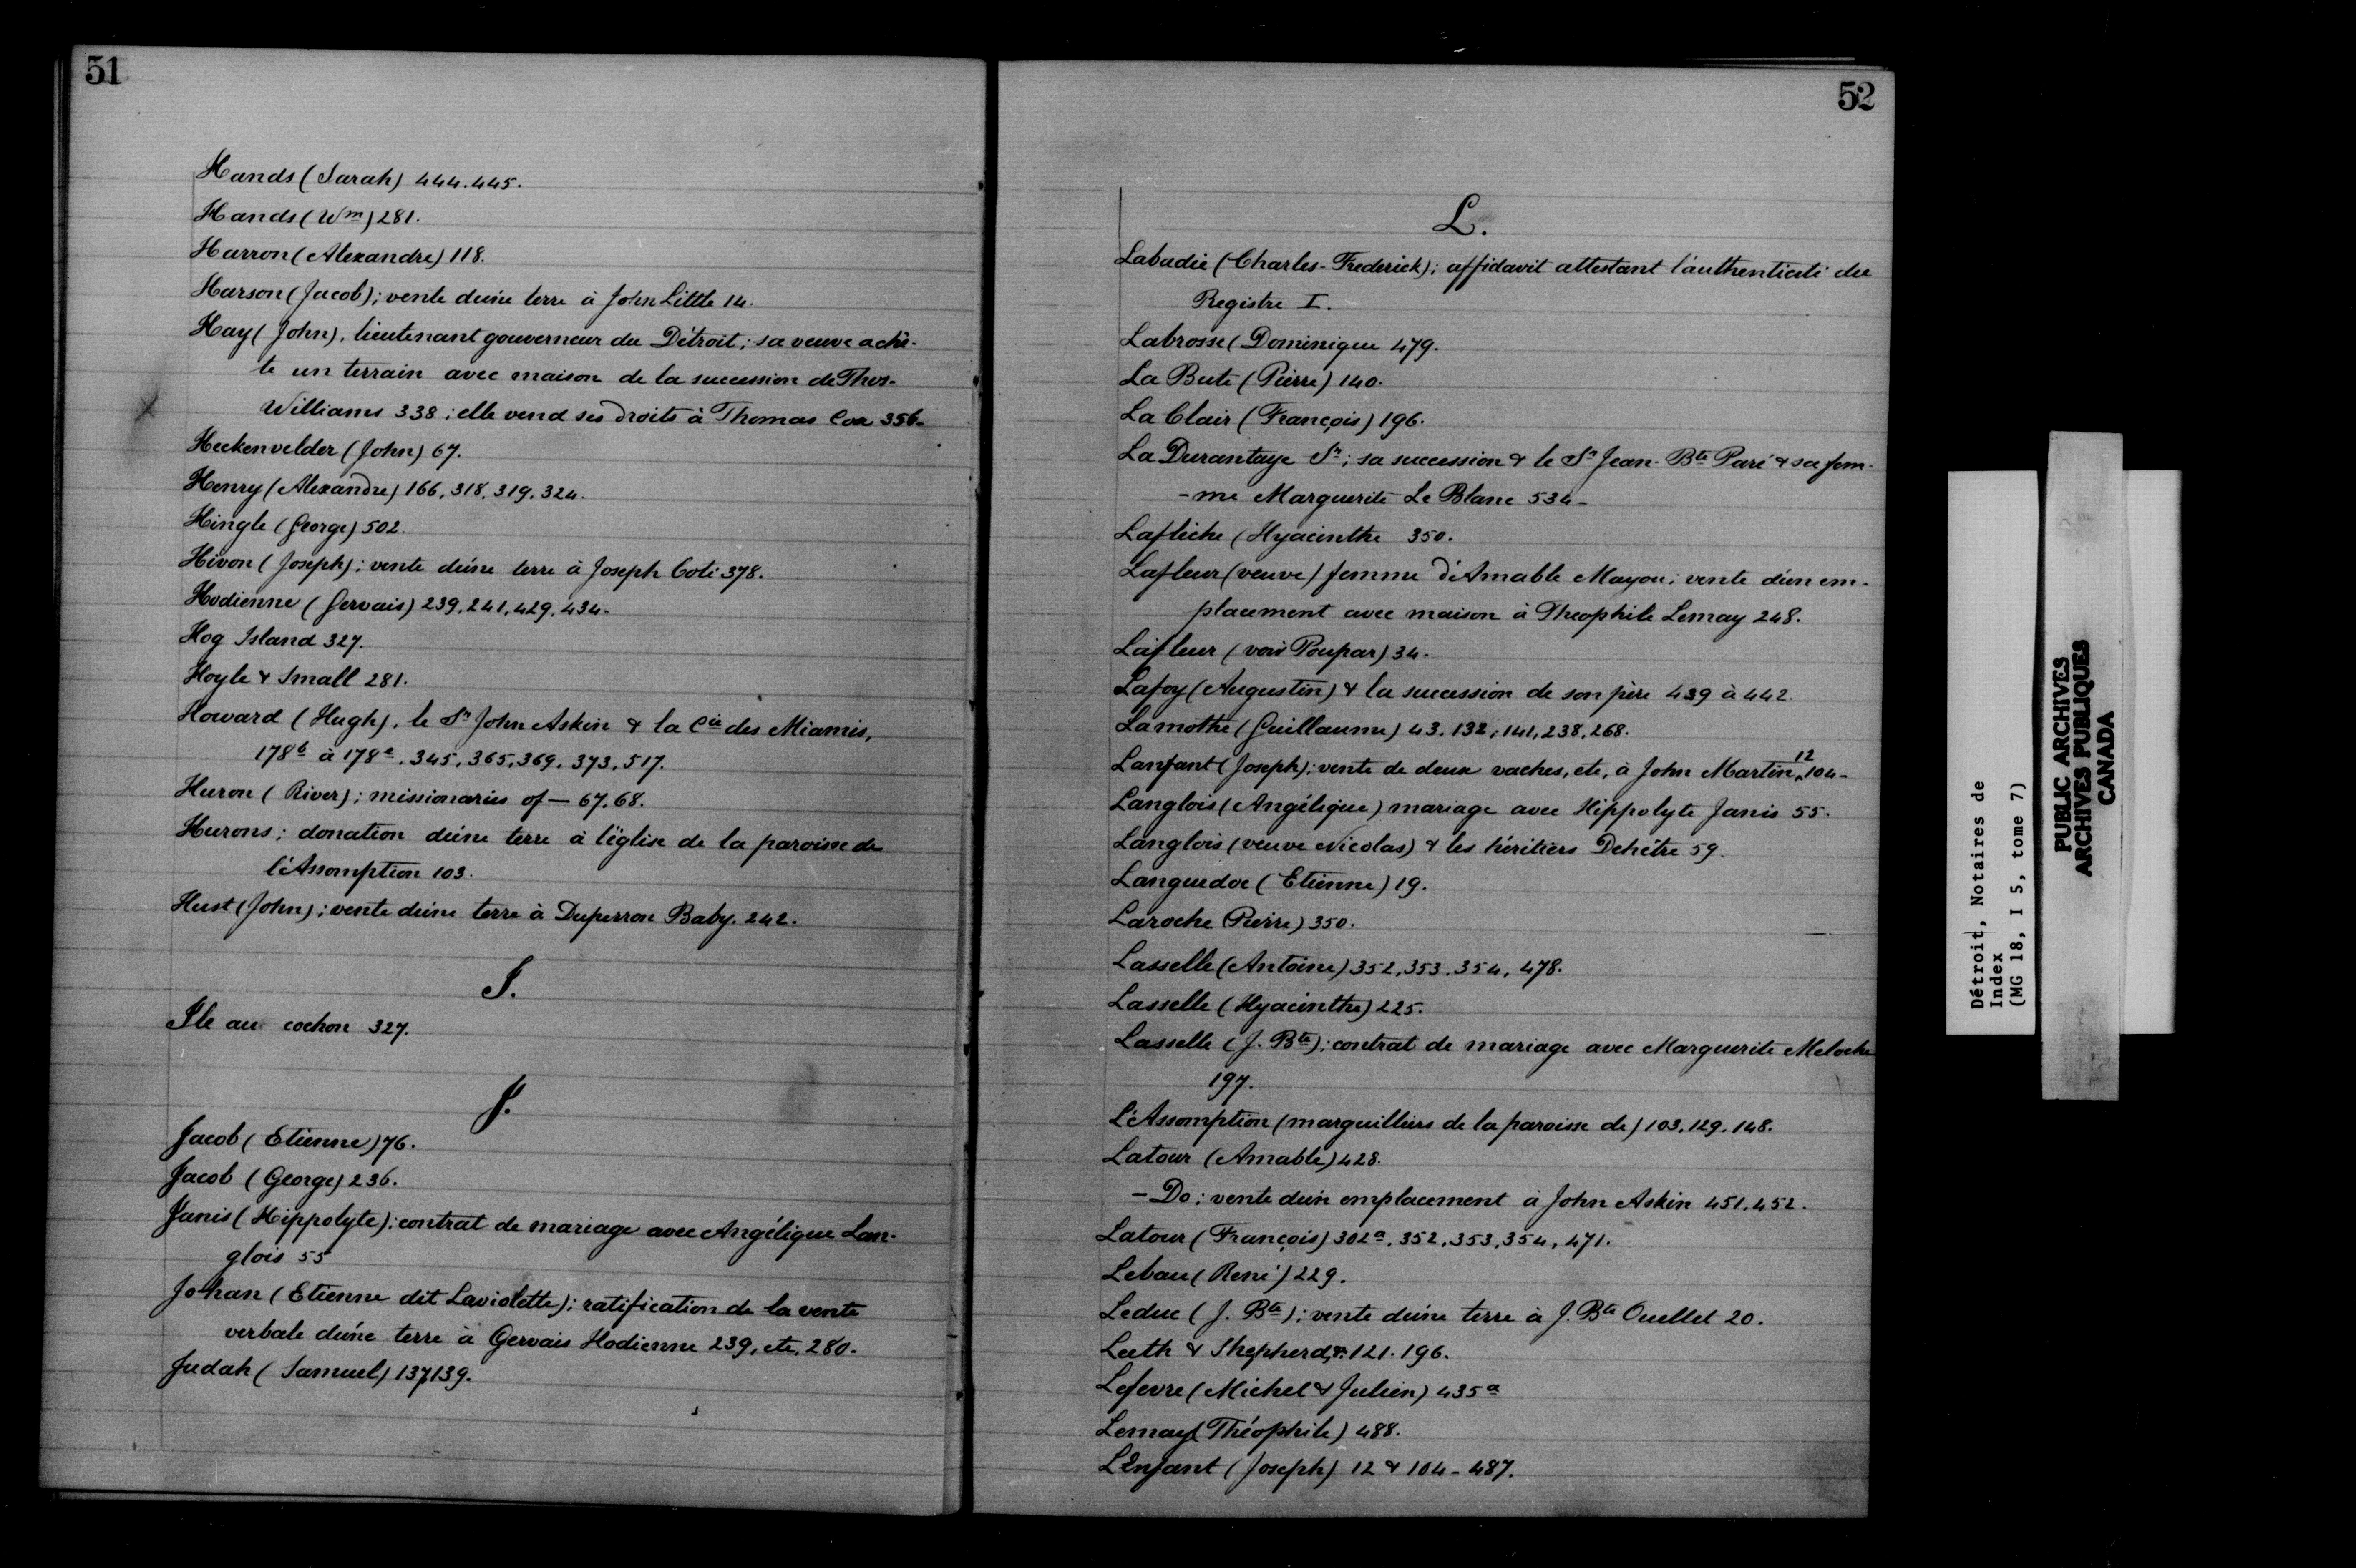 51
Hands (Sarah) 444.445.
Hands (Wm) 281.
Harron (Alexandre) 118.
Harson (Jacob); vente d'une terre à John Little 14.
Hay (John), lieutenant gouverneur du Détroit; sa veuve achè-
te un terrain avec maison de la succession de Thos.
Williams 338; elle vend ses droits à Thomas Cox 356.
Heckenvelder (John) 67.
Henry (Alexandre) 166, 318, 319, 324.
Hingle (George) 502.
Hivon (Joseph); vente d'une terre à Joseph Coté 378.
Hodienne (Gervais) 239, 241, 429, 434.
Hog Island 327.
Hoyle & Small 281.
Howard (Hugh), le Sr John Askin & la Cie des Miamis,
178b à 178e, 345, 365, 369, 373, 517.
Huron (River); missionaries of — 67.68.
Hurons; donation d'une terre à l'église de la paroisse de
l'Assomption 103.
Hust (John); vente d'une terre à Duperron Baby. 242.
I.
Ile au cochon 327.
J.
Jacob (Etienne) 76.
Jacob (George) 236.
Janis (Hippolyte); contrat de mariage avec Angélique Lan-
glois 55
Johan (Etienne dit Laviolette); ratification de la vente
verbale d'une terre à Gervais Hodienne 239, etc, 280.
Judah (Samuel) 137,139.
52
L.
Labadie (Charles-Frederick); affidavit attestant l'authenticité du
Registre I.
Labrosse (Dominique 479.
La Bute (Pierre) 140.
La Clair (François) 196.
La Durantaye Sr; sa succession & le Sr Jean-Bte Paré & sa fem-
-me Marguerite Le Blanc 534-
Laflèche (Hyacinthe 350.
Lafleur (veuve) femme d'Amable Mayou; vente d'un em-
placement avec maison à Theophile Lemay 248.
Lafleur (voir Poupar) 34.
Lafoy (Augustin) & la succession de son père 439 à 442.
Lamothe (Guillaume) 43, 132, 141, 238, 268.
Lanfant (Joseph); vente de deux vaches, etc, à John Martin, 12, 104-
Langlois (Angélique) mariage avec Hippolyte Janis 55.
Langlois (veuve Nicolas) & les héritiers Dehêtre 59.
Languedoc (Etienne) 19.
Laroche (Pierre) 350.
Lasselle (Antoine) 352, 353, 354, 478.
Lasselle (Hyacinthe) 225.
Lasselle (J. Bte); contrat de mariage avec Marguerite Meloche
197.
L'Assomption (marguilliers de la paroisse de) 103, 129, 148.
Latour (Amable) 428.
- Do; vente d'un emplacement à John Askin 451, 452.
Latour (François) 302a, 352, 353, 354, 471.
Lebau (René) 229.
Leduc (J. Bte); vente d'une terre à J. Bte Ouellet 20.
Leeth & Shepherd, 121. 196.
Lefevre (Michel & Julien) 435a
Lemay (Théophile) 488.
L'Enfant (Joseph) 12 & 104 - 487.
Détroit, Notaires de
Index
(MG 18, I 5, tome 7)
PUBLIC ARCHIVES
ARCHIVES PUBLIQUES
CANADA